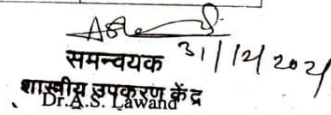 समन्वयक 31/12/202
शास्त्रीय उपकरण केंद्र
Dr.A.S. Lawand